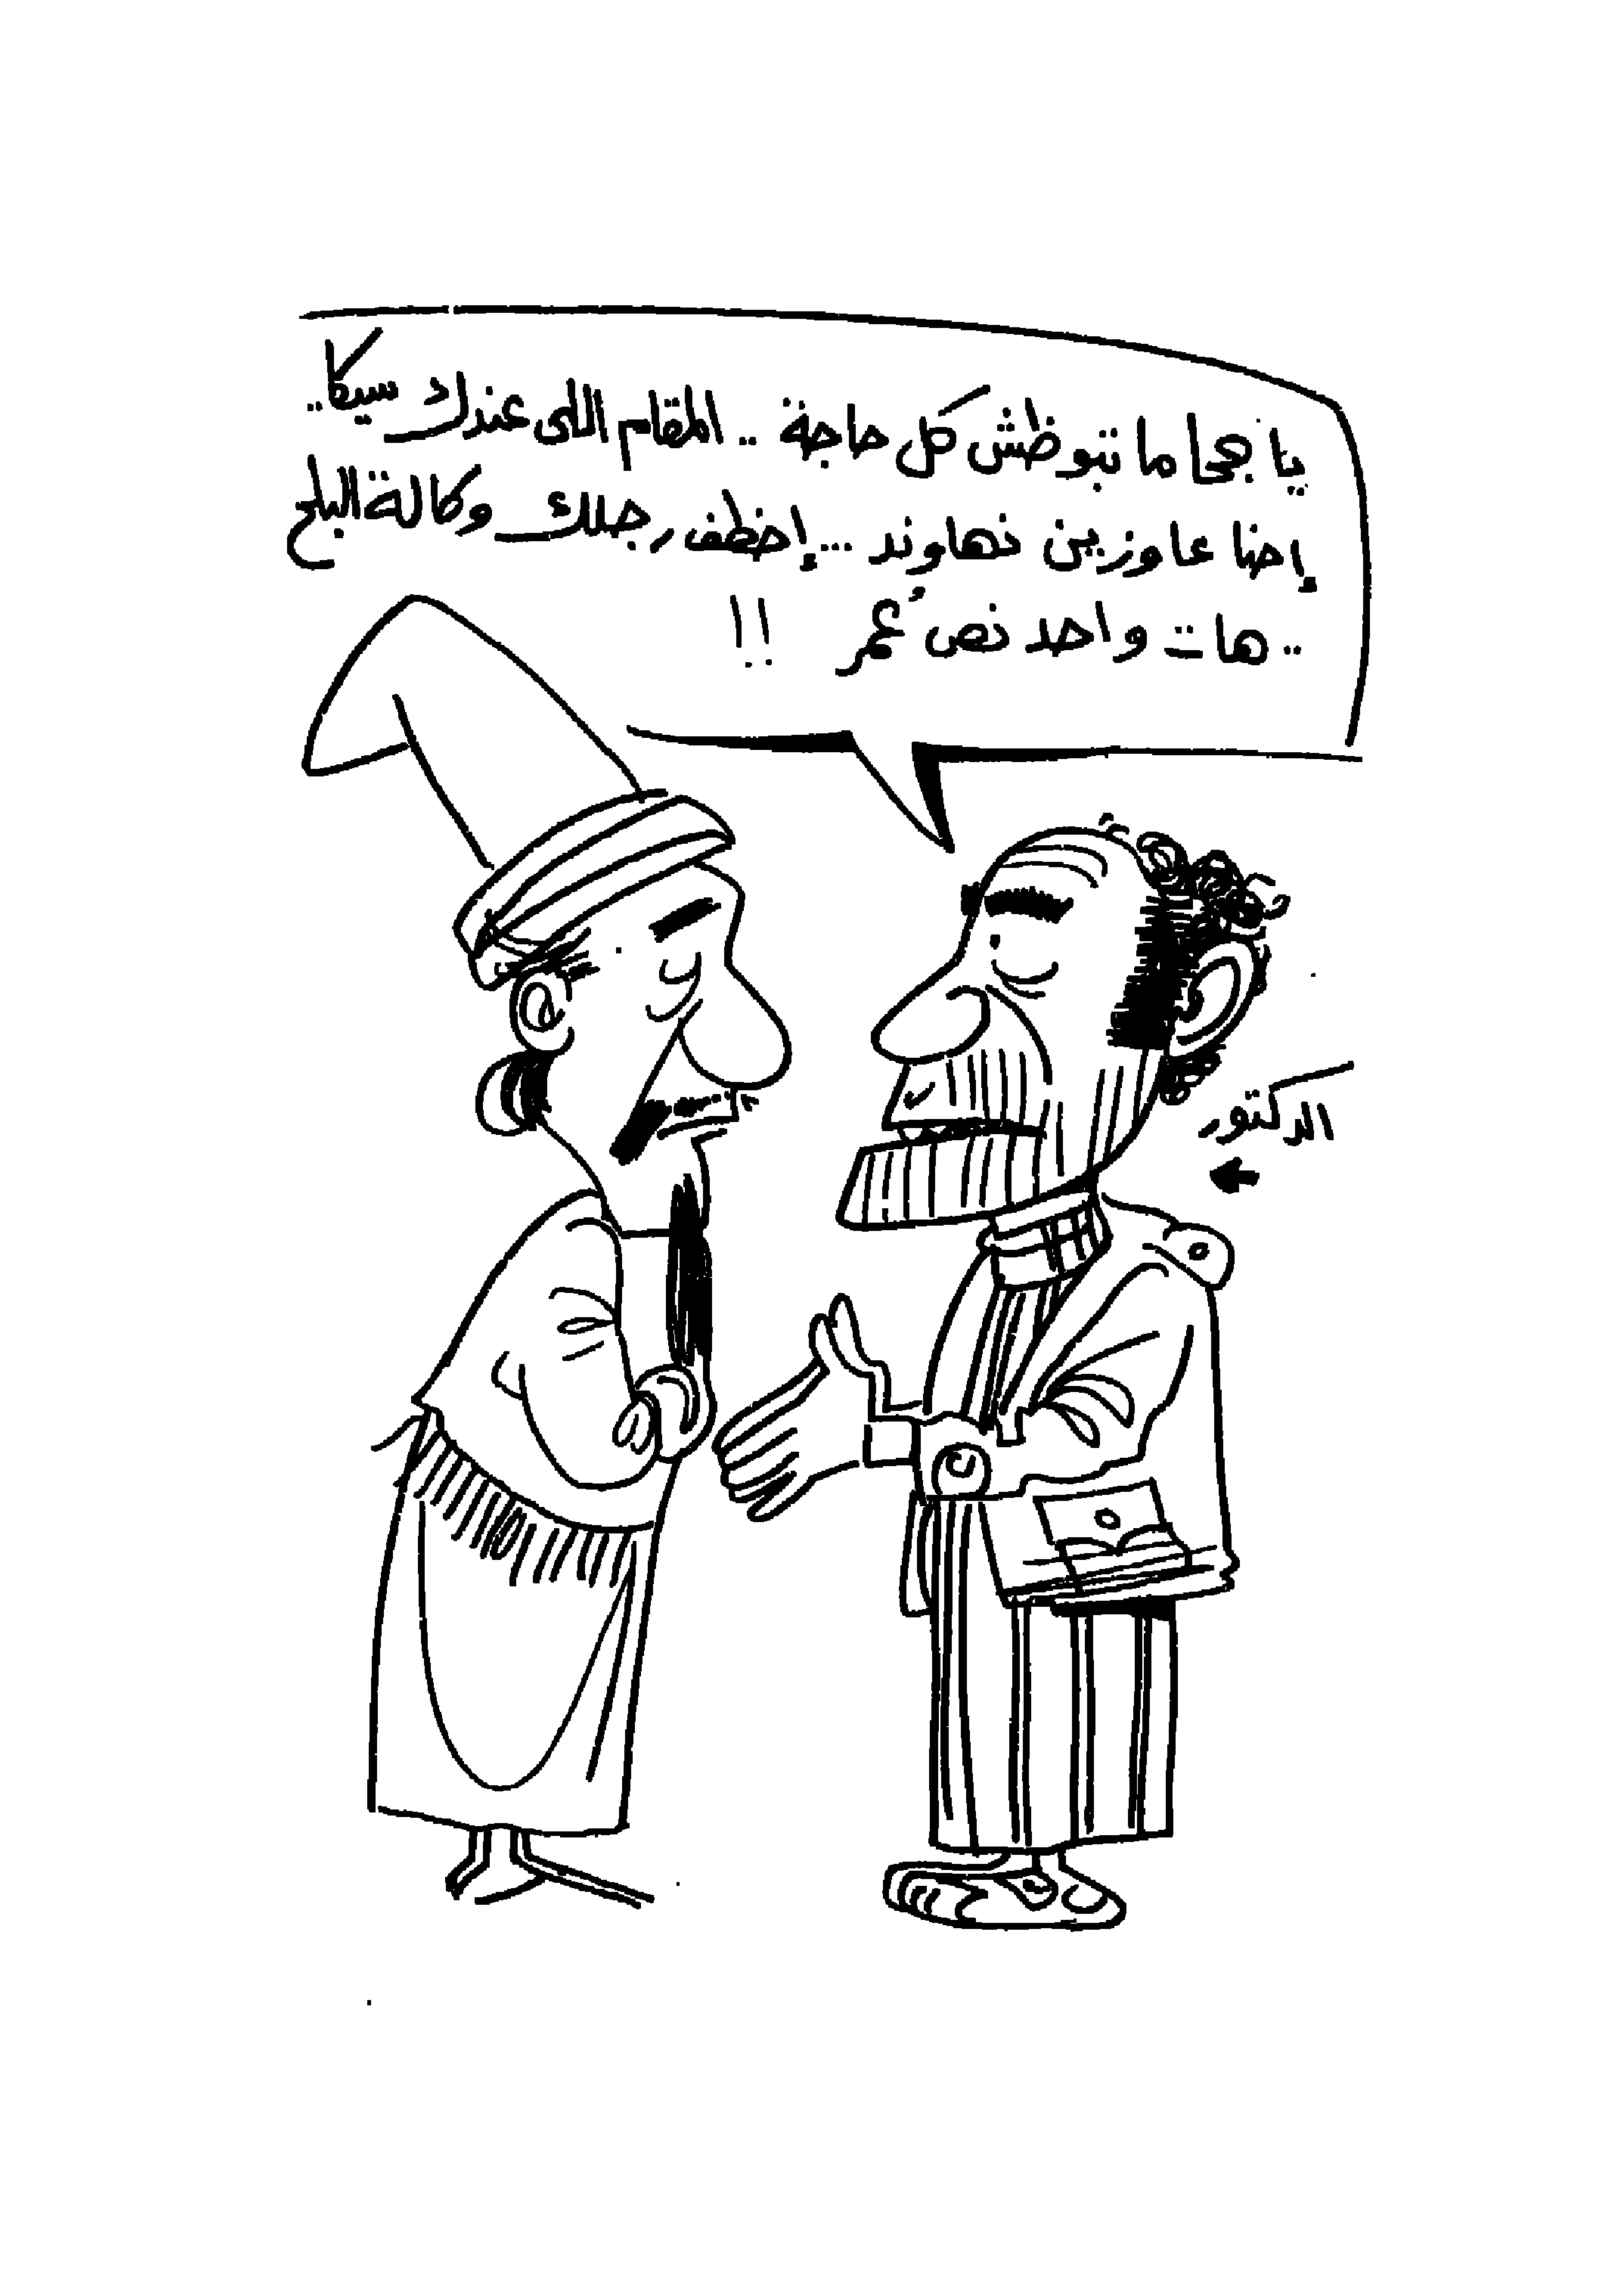 يا جحا ما تبوظش كل حاجة .. المقام اللى عندك سيكا ..
إحنا عاوزين نهاوند ... إخطف رجلك وكالة البلح
.. هات واحد نص عُمر !!
الدكتور